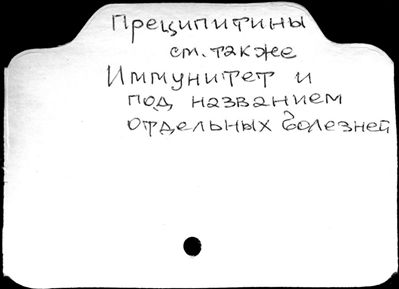 Преципитины
см. также
Иммунитет и
под названием
отдельных болезней